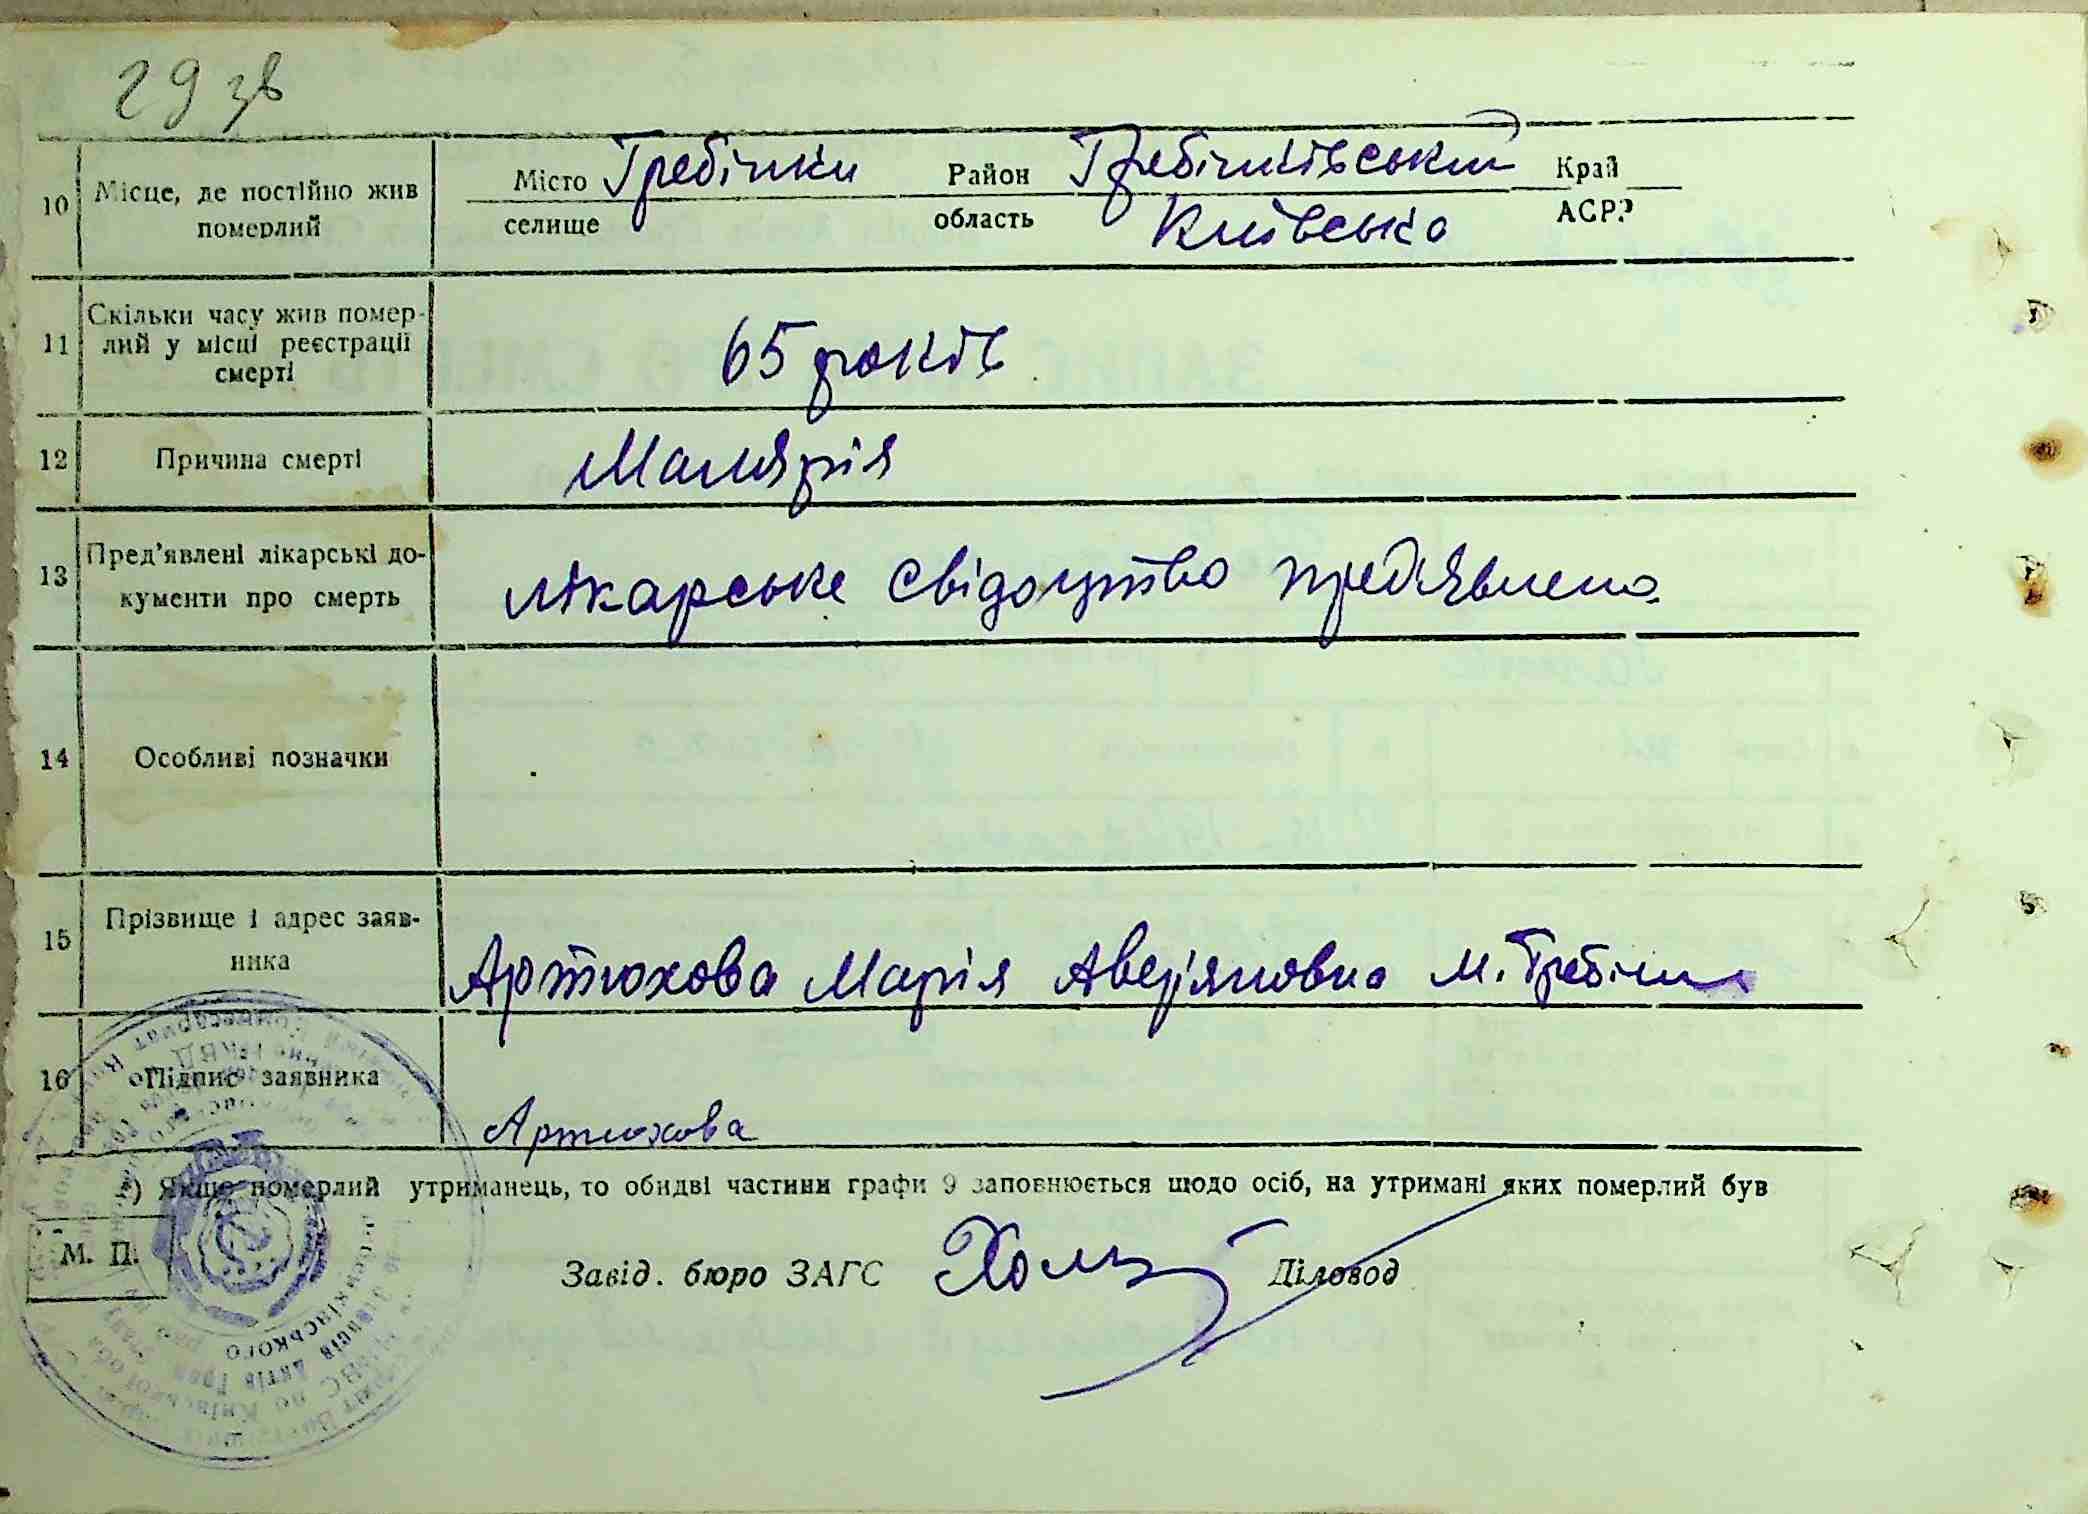 29 зв
10 Місце, де постійно жив Місто Гребінки Район Гребінківський Край
померлий селище область Київська АСРР
11 Скільки часу жив помер-
лий у місці реєстрації 65 років
смерті
12 Причина смерті Малярія
13 Пред'явлені лікарські до-
кументи про смерть лікарське свідоцтво пред'явлено.
14 Особливі позначки
15 Прізвище і адрес заяв-
ника Артюхова Марія Авер'яновна м. Гребінки
16 Підпис заявника Артюхова
*) Якщо померлий утриманець, то обидві частини графи 9 заповнюється щодо осіб, на утримані яких померлий був
М. П. Завід. бюро ЗАГС Діловод